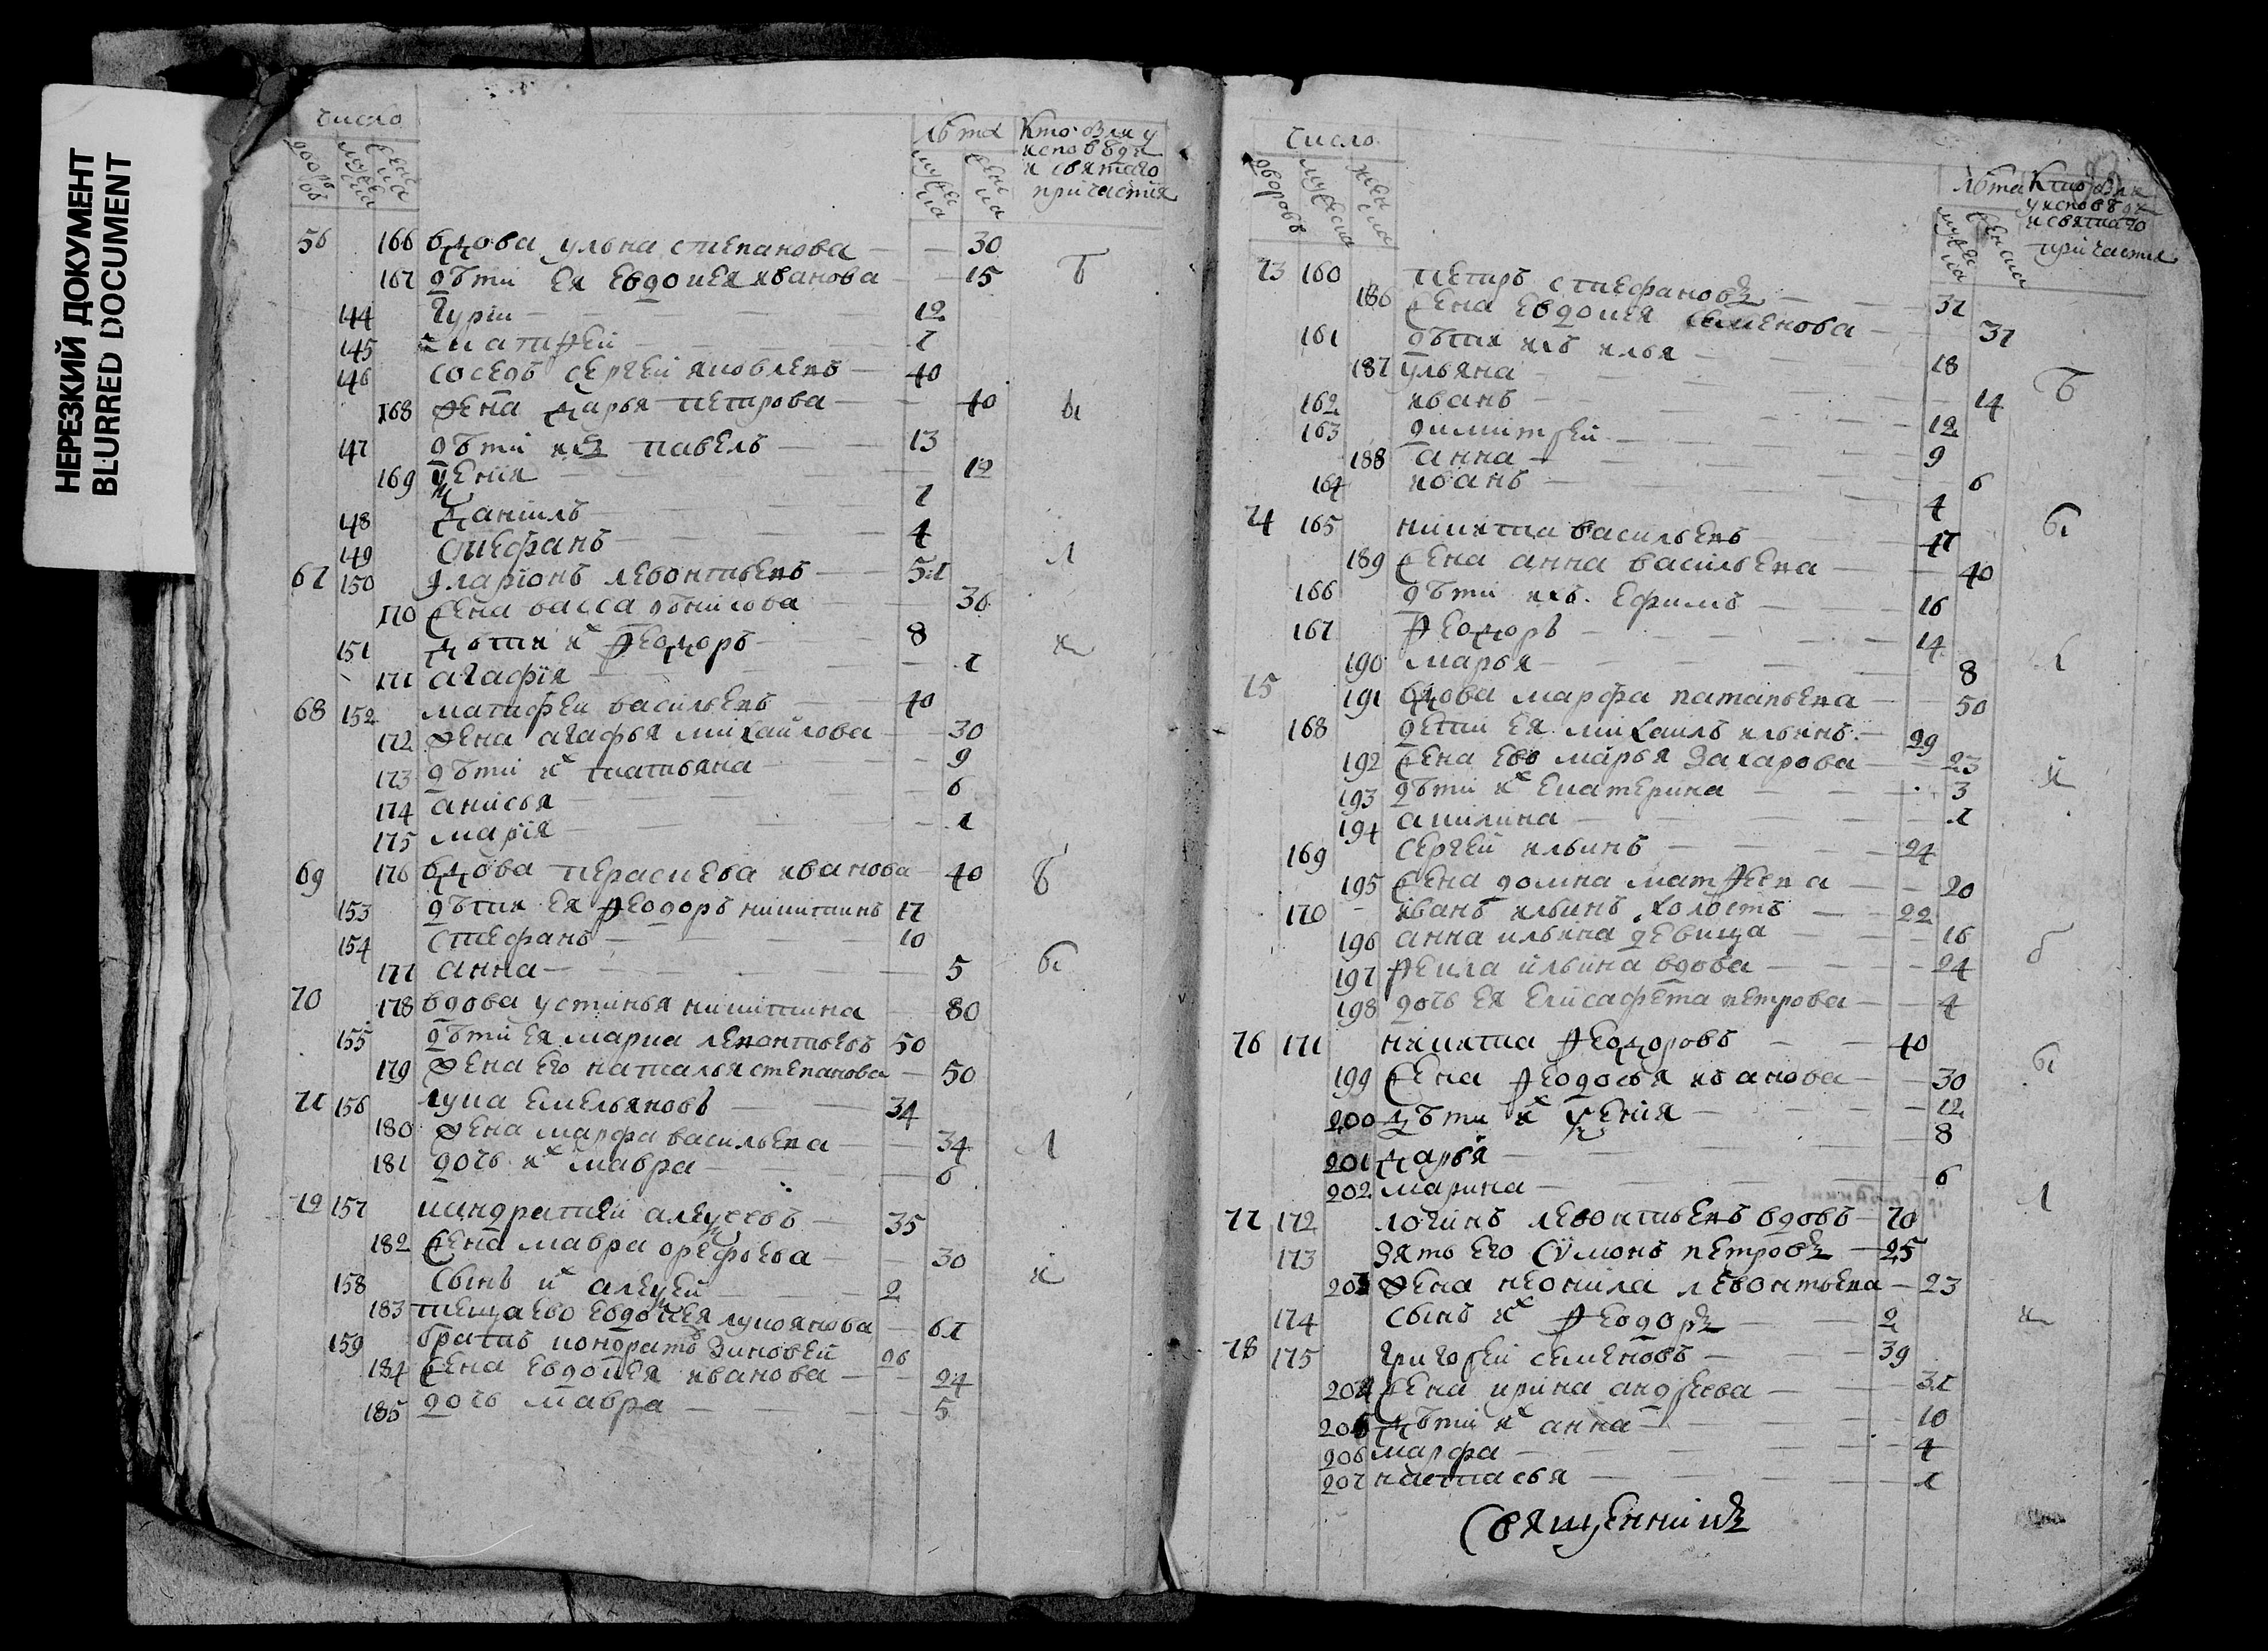 НЕРЕЗКИЙ ДОКУМЕНТ
BLURRED DOCUMENT
Число
дворовъ мужеска женска
лѣта
мужеска женска
Кто былъ у исповѣди и святаго причастия
56 166 вдова ульна степанова — 30
167 дѣти ея евдокея иванова — 15
144 гурги — 12
145 матфей — 7
146 сосѣдъ сергей яковлевъ — 40
168 жена дарья петрова — 40
147 дѣти ихъ павелъ — 13
169 — 12
148 данилъ — 7
149 стефанъ — 4
67 150 иларионъ левонтьевъ — 51
170 жена васса — 36
151 дѣти их феодоръ — 8
171 агафия — 1
68 152 матфеи васильевъ — 40
172 жена агафья михайлова — 30
173 дѣти их татьяна — 9
174 анисья — 6
175 мария — 1
69 176 вдова перасковa иванова — 40
153 дѣти ея феодоръ никитинъ 17
154 стефанъ — 10
177 анна — 5
70 178 вдова устинья никитина — 80
155 дѣти ея марка левонтьевъ 50
179 жена его наталья степанова — 50
71 156 лука емельяновъ — 34
180 жена марфа васильева — 34
181 дочь их мавра — 6
72 157 кандратей алексеевъ — 35
182 жена мавра орефьева — 30
158 сынъ их алексей — 2
183 теща ево евдокея лукоянова — 61
159 братъ кондратъ зиновей 26
184 жена евдокея иванова — 24
185 дочь мавра — 5
Число
дворовъ мужеска женска
лѣта
мужеска женска
Кто былъ у исповѣди и святаго причастия
73 160 петръ стефановъ — 37
186 жена евдокея семенова — 37
161 дѣти ихъ илья — 18
187 ульяна — 14
162 иванъ — 12
163 димитрей — 9
188 анна — 6
164 иванъ — 4
74 165 никита васильевъ — 47
189 жена анна васильева — 40
166 дѣти ихъ ефимъ — 16
167 феодоръ — 14
190 марья — 8
75 191 вдова марфа патапьева — 50
168 дети ея михаилъ ильинъ — 29
192 жена ево марья захарова — 23
193 дѣти их екатерина — 3
194 акилина — 1
169 сергей ильинъ — 24
195 жена домна матфеева — 20
170 иванъ ильинъ холостъ — 22
196 анна ильина девица — 16
197 фекла ильина вдова — 24
198 дочь ея елисафета петрова — 4
76 171 никита феодоровъ — 40
199 жена феодосья иванова — 30
200 дѣти их ксения — 12
201 дарья — 8
202 марина — 6
77 172 логинъ левонтьевъ вдовъ — 70
173 зять его сѵмонъ петровъ — 25
203 жена неонила левонтьева — 23
174 сынъ их феодоръ — 2
78 175 григорей семеновъ — 39
204 жена ирина андреева — 31
205 дѣти их анна — 10
206 марфа — 4
207 настасья — 1
Священникъ